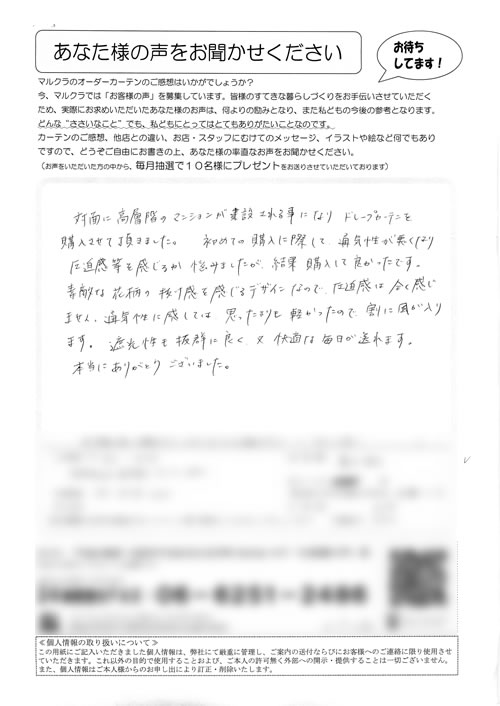 あなた様の声をお聞かせください
お待ち
してます！
マルクラのオーダーカーテンのご感想はいかがでしょうか？
今、マルクラでは「お客様の声」を募集しています。皆様のすてきな暮らしづくりをお手伝いさせていただく
ため、実際にお求めいただいたあなた様のお声は、何よりの励みとなり、また私どもの今後の参考となります。
どんな“ささいなこと”でも、私どもにとってはとてもありがたいことなのです。
カーテンのご感想、他店との違い、お店・スタッフにむけてのメッセージ、イラストや絵など何でもあり
ですので、どうぞご自由にお書きの上、あなた様の率直なお声をお聞かせください。
（お声をいただいた方の中から、毎月抽選で１０名様にプレゼントをお送りさせていただいております）
対面に高層階のマンションが建設される事になり ドレープカーテンを
購入させて頂きました。 初めての購入に際して、通気性が無くなり
圧迫感等を感じるか悩みましたが、結果 購入して良かったです。
素敵な花柄の抜け感を感じるデザインなので、圧迫感は全く感じ
ません。通気性に感しては、思ったよりも軽かったので、割に風が入り
ます。遮光性も抜群に良く、又 快適な毎日が送れます。
本当にありがとうございました。
06-6251-2486
≪個人情報の取り扱いについて≫
この用紙にご記入いただきました個人情報は、弊社にて厳重に管理し、ご案内の送付ならびにお客様へのご連絡に限り使用させ
ていただきます。これ以外の目的で使用することおよび、ご本人の許可無く外部への開示・提供することは一切ございません。
また、個人情報はご本人様からのお申し出により訂正・削除いたします。